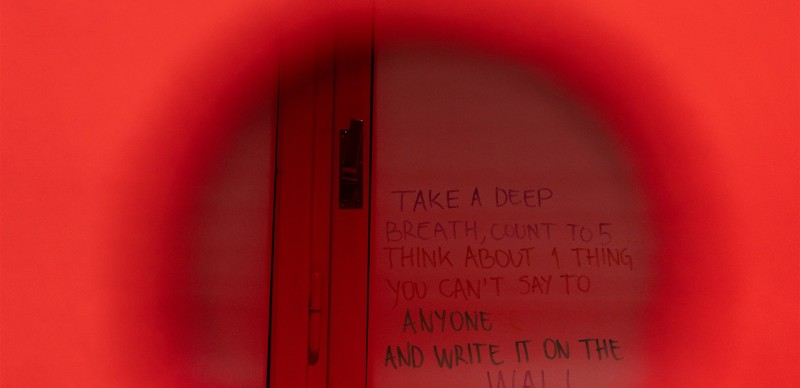 TAKE A DEEP
BREATH, COUNT TO 5
THINK ABOUT 1 THING
YOU CAN'T SAY TO
ANYONE
AND WRITE IT ON THE
WALL